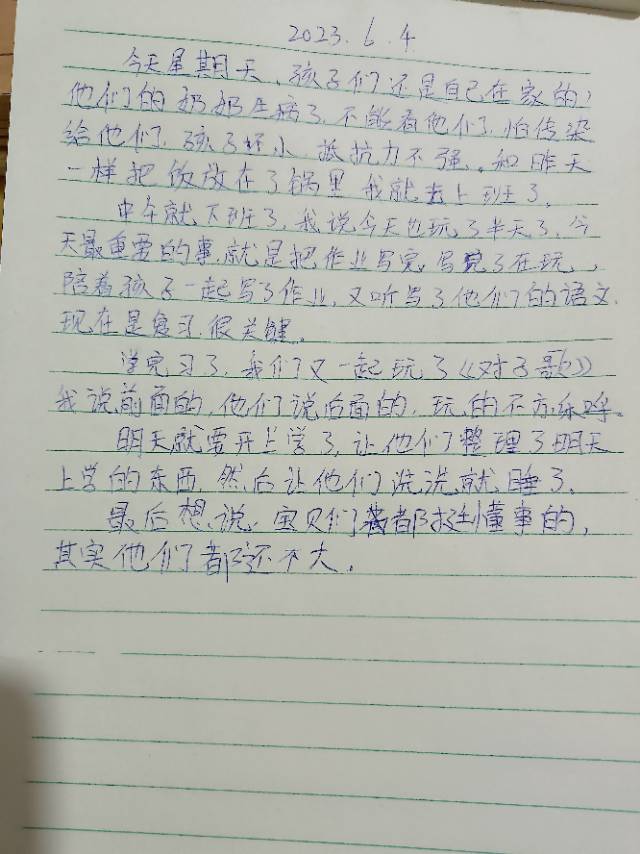 2023.6.4
今天星期天、孩子们还是自己在家的,
他们的奶奶生病了、不能看他们,怕传染
给他们,孩子还小,抵抗力不强。和昨天
一样把饭放在了锅里,我就去上班了。
中午就下班了,我说今天也玩了半天了,今
天最重要的事,就是把作业写完,写完了在玩,
陪着孩子一起写了作业,又听写了他们的语文,
现在是复习,很关键。
学完习了,我们又一起玩了《对子歌》
我说前面的,他们说后面的,玩的不亦乐乎。
明天就要开上学了,让他们整理了明天
上学的东西,然后让他们洗洗就睡了、
最后想说,宝贝们都挺懂事的,
其实他们都还不大。